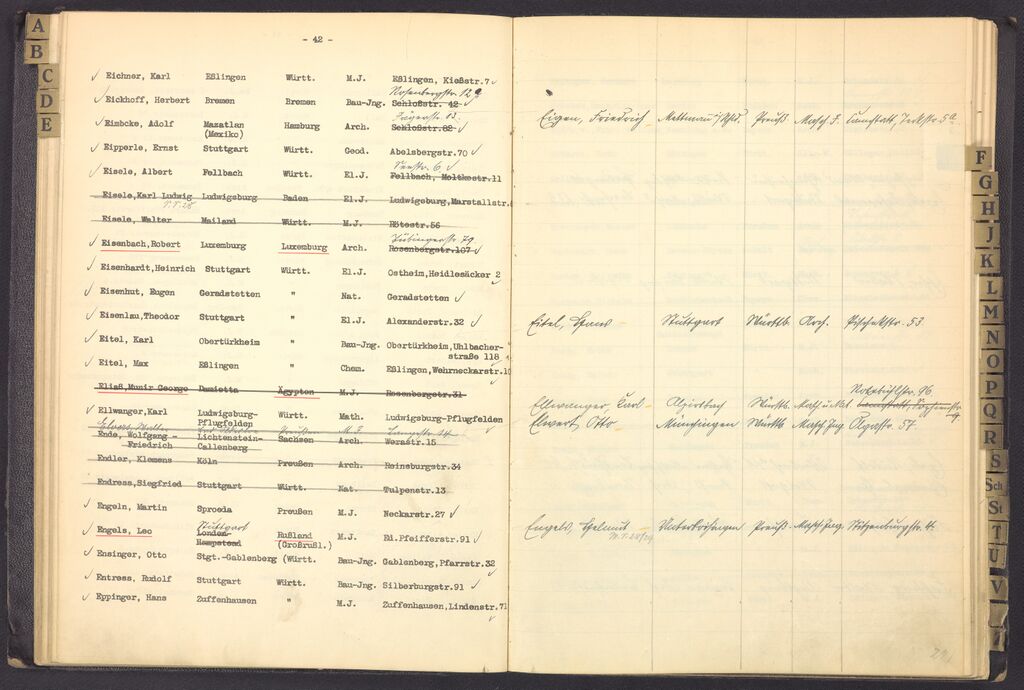 A
B
C
D
E
- 42 -
✓ Eichner, Karl Eßlingen Württ. M.J. Eßlingen, Kießstr.7 ✓
Rosenbergstr. 129
✓ Eickhoff, Herbert Bremen Bremen Bau-Jng. Schloßstr. 42 ✓
Jägerstr. 13.
✓ Eimbcke, Adolf Mazatlan Hamburg Arch. Schloßstr.82 ✓
(Mexiko)
✓ Eipperle, Ernst Stuttgart Württ. Geod. Abelsbergstr.70 ✓
Seestr. 6 ✓
✓ Eisele, Albert Fellbach Württ. El.J. Fellbach, Moltkestr.11
Eisele,Karl Ludwig Ludwigsburg Baden El.J. Ludwigsburg,Marstallstr.
Eisele, Walter Mailand Württ. M.J. Rötestr.56
Tübingerstr. 79
✓ Eisenbach,Robert Luxemburg Luxemburg Arch. Rosenbergstr.107 ✓
✓ Eisenhardt,Heinrich Stuttgart Württ. El.J. Ostheim,Heidlesäcker 2
✓ Eisenhut, Eugen Geradstetten " Nat. Geradstetten ✓
✓ Eisenlau,Theodor Stuttgart " El.J. Alexanderstr.32 ✓
✓ Eitel, Karl Obertürkheim " Bau-Jng. Obertürkheim,Uhlbacher-
straße 118 ✓
✓ Eitel, Max Eßlingen " Chem. Eßlingen,Wehrneckarstr.10
Eliaß,Munir George Damietta Ägypten M.J. Rosenbergstr.31
✓ Ellwanger,Karl Ludwigsburg- Württ. Math. Ludwigsburg-Pflugfelden
Pflugfelden ✓
Ende, Wolfgang - Lichtenstein- Sachsen Arch. Werastr.15
Friedrich Callenberg
Endler, Klemens Köln Preußen Arch. Reinsburgstr.34
Endress,Siegfried Stuttgart Württ. Nat. Tulpenstr.13
✓ Engeln, Martin Sproeda Preußen M.J. Neckarstr.27 ✓
Stuttgart
✓ Engels, Leo London- Rußland M.J. Ed.Pfeifferstr.91 ✓
Hampstead (Großrußl.)
✓ Ensinger, Otto Stgt.-Gablenberg (Württ. Bau-Jng. Gablenberg, Pfarrstr.32
✓ Entress, Rudolf Stuttgart Württ. Bau-Jng. Silberburgstr.91 ✓
✓ Eppinger, Hans Zuffenhausen " M.J. Zuffenhausen,Lindenstr.71
✓
Eigen, Friedrich Mettmann Preuß. Masch. J. Cannstatt, Teckstr. 5a
Eitel, Hans Stuttgart Württb. Arch. 53
Ellwanger, Karl Alpirsbach Württb. Masch. u. Cannstatt,
Elwert, Otto Münsingen Württb. Masch. Jng. Olgastr. 57
Engels, Helmut Preuß. Masch. Jng.
F
G
H
J
K
L
M
N
O
P
Q
R
S
Sch
St
T
U
V